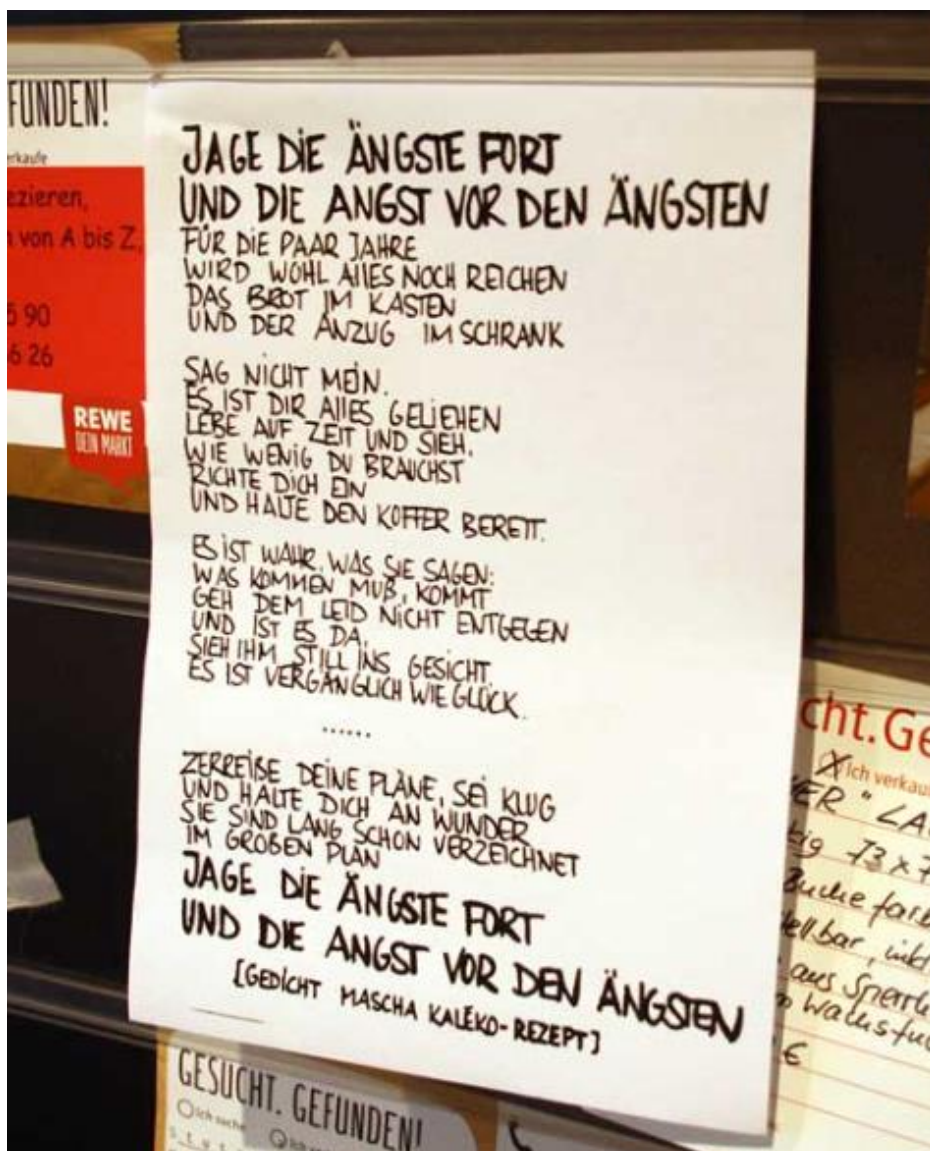 FUNDEN!
erkaufe
ezieren,
von A bis Z,
5 90
6 26
REWE
DEIN MARKT
JAGE DIE ÄNGSTE FORT
UND DIE ANGST VOR DEN ÄNGSTEN
FÜR DIE PAAR JAHRE
WIRD WOHL ALLES NOCH REICHEN
DAS BROT IM KASTEN
UND DER ANZUG IM SCHRANK
SAG NICHT MEIN.
ES IST DIR ALLES GELIEHEN
LEBE AUF ZEIT UND SIEH,
WIE WENIG DU BRAUCHST
RICHTE DICH EIN
UND HALTE DEN KOFFER BEREIT.
ES IST WAHR, WAS SIE SAGEN:
WAS KOMMEN MUß, KOMMT
GEH DEM LEID NICHT ENTGEGEN
UND IST ES DA,
SIEH IHM STILL INS GESICHT.
ES IST VERGÄNGLICH WIE GLÜCK.
......
ZERREIßE DEINE PLÄNE, SEI KLUG
UND HALTE DICH AN WUNDER
SIE SIND LANG SCHON VERZEICHNET
IM GROßEN PLAN
JAGE DIE ÄNGSTE FORT
UND DIE ANGST VOR DEN ÄNGSTEN
[GEDICHT MASCHA KALÉKO-REZEPT]
cht.Ge
Ich verkau
ER" LA
tig 73 x 7
Buche farb
ellbar, inkl
aus Sperrh
€
GESUCHT. GEFUNDEN!
Ich suche